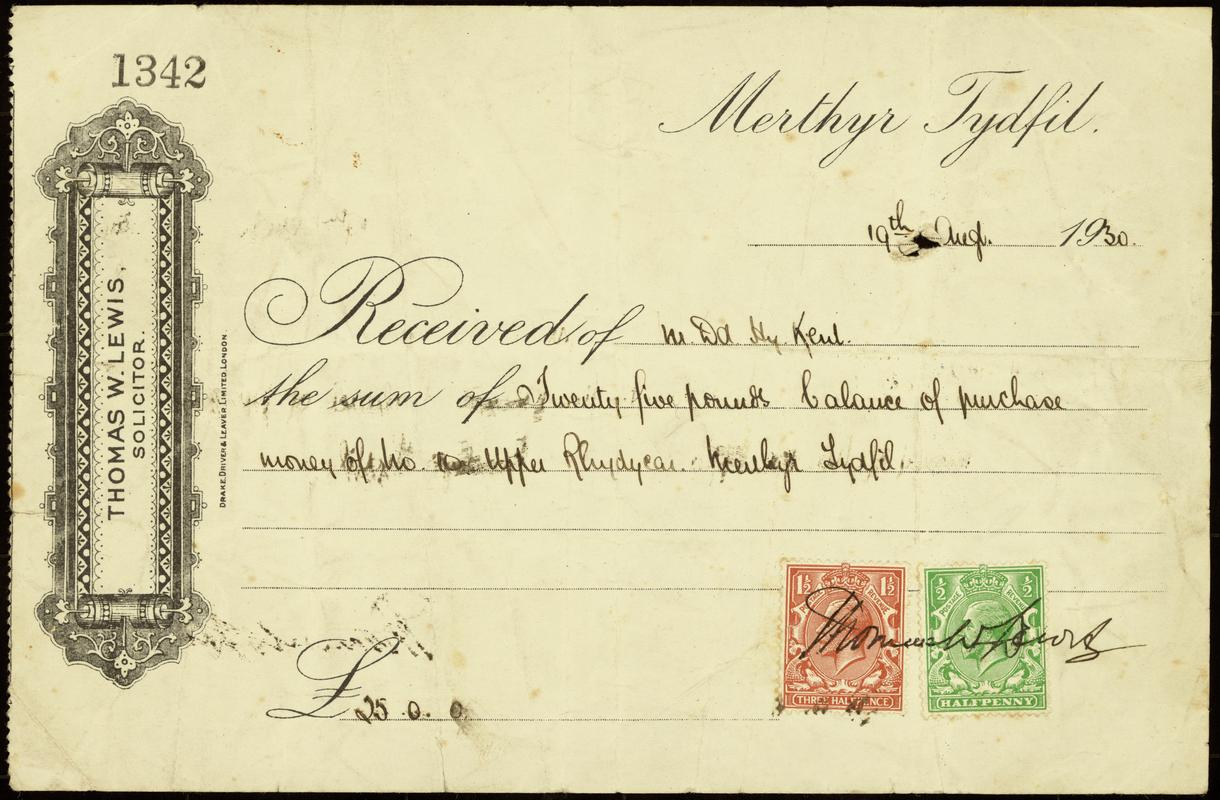 1342
Merthyr Tydfil.
19th Augt. 1930.
THOMAS W. LEWIS,
SOLICITOR.
DRAKE, DRIVER & LEAVER LIMITED LONDON.
Received of Mr Dd Hy. Kent.
the sum of Twenty five pounds balance of purchase
money of No. Upper Rhydycar. Merthyr Tydfil
1½ 1½ ½ ½
POSTAGE REVENUE
Thomas W Lewis
THREE HALFPENCE HALFPENNY
£ 25 0. 0